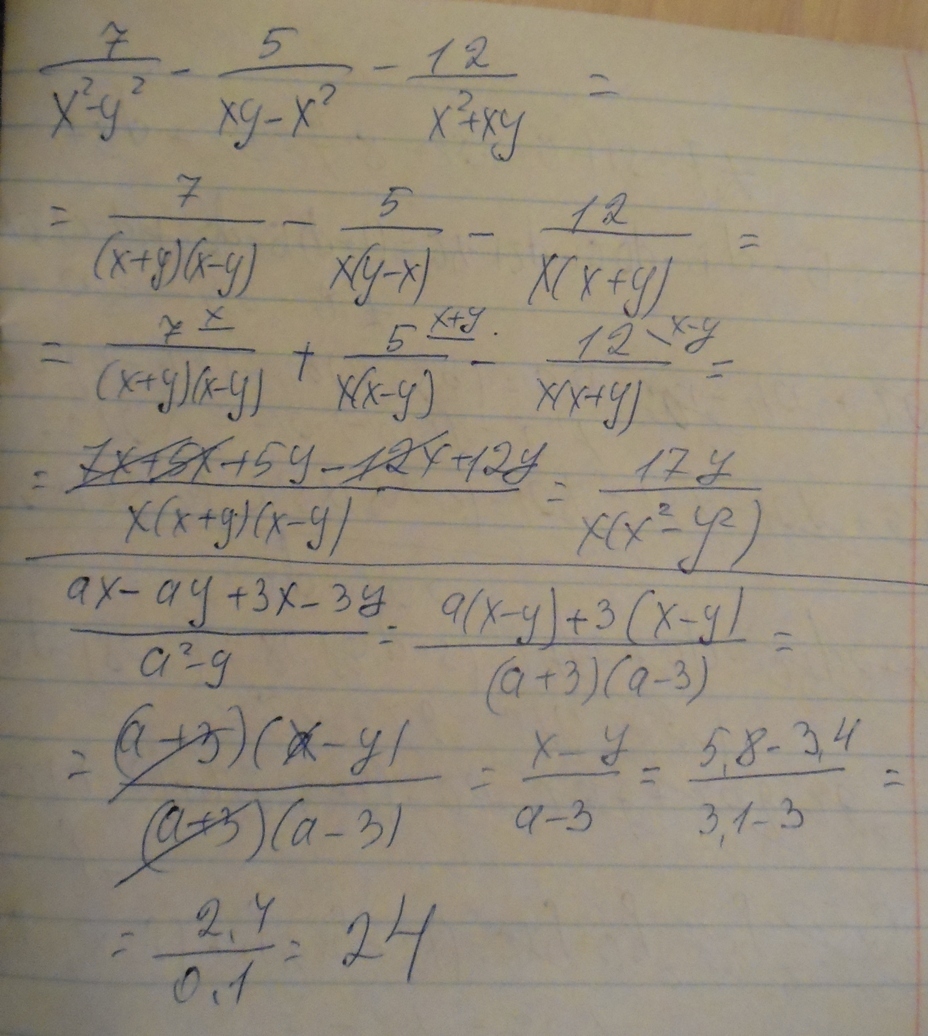 7/(x²-y²) - 5/(xy-x²) - 12/(x²+xy) =
= 7/((x+y)(x-y)) - 5/(x(y-x)) - 12/(x(x+y)) =
= 7 x/((x+y)(x-y)) + 5 x+y/(x(x-y)) - 12 \x-y/(x(x+y)) =
= (7x+5x+5y-12x+12y)/(x(x+y)(x-y)) = 17y/(x(x²-y²))
(ax-ay+3x-3y)/(a²-9) = (a(x-y)+3(x-y))/((a+3)(a-3)) =
= ((a+3)(x-y))/((a+3)(a-3)) = (x-y)/(a-3) = (5,8-3,4)/(3,1-3) =
= 2,4/0,1 = 24